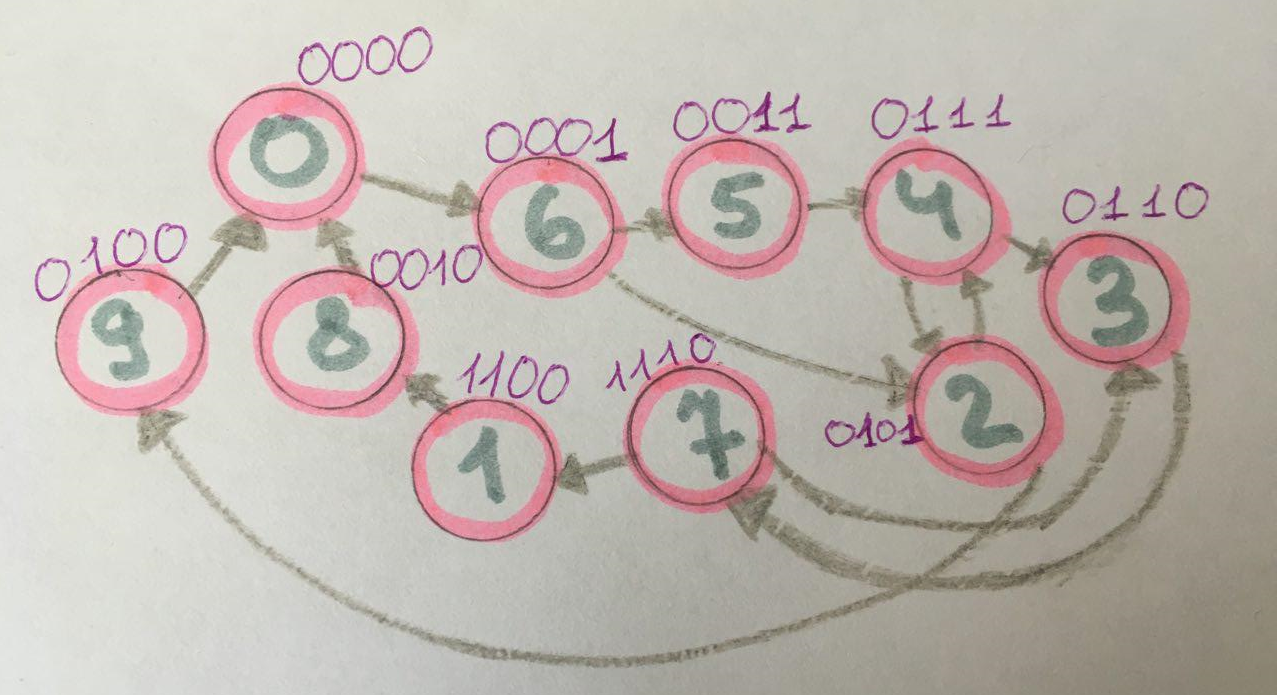 0000
0
0001
6
0011
5
0111
4
0110
3
0100
9
0010
8
1100
1
1110
7
0101
2